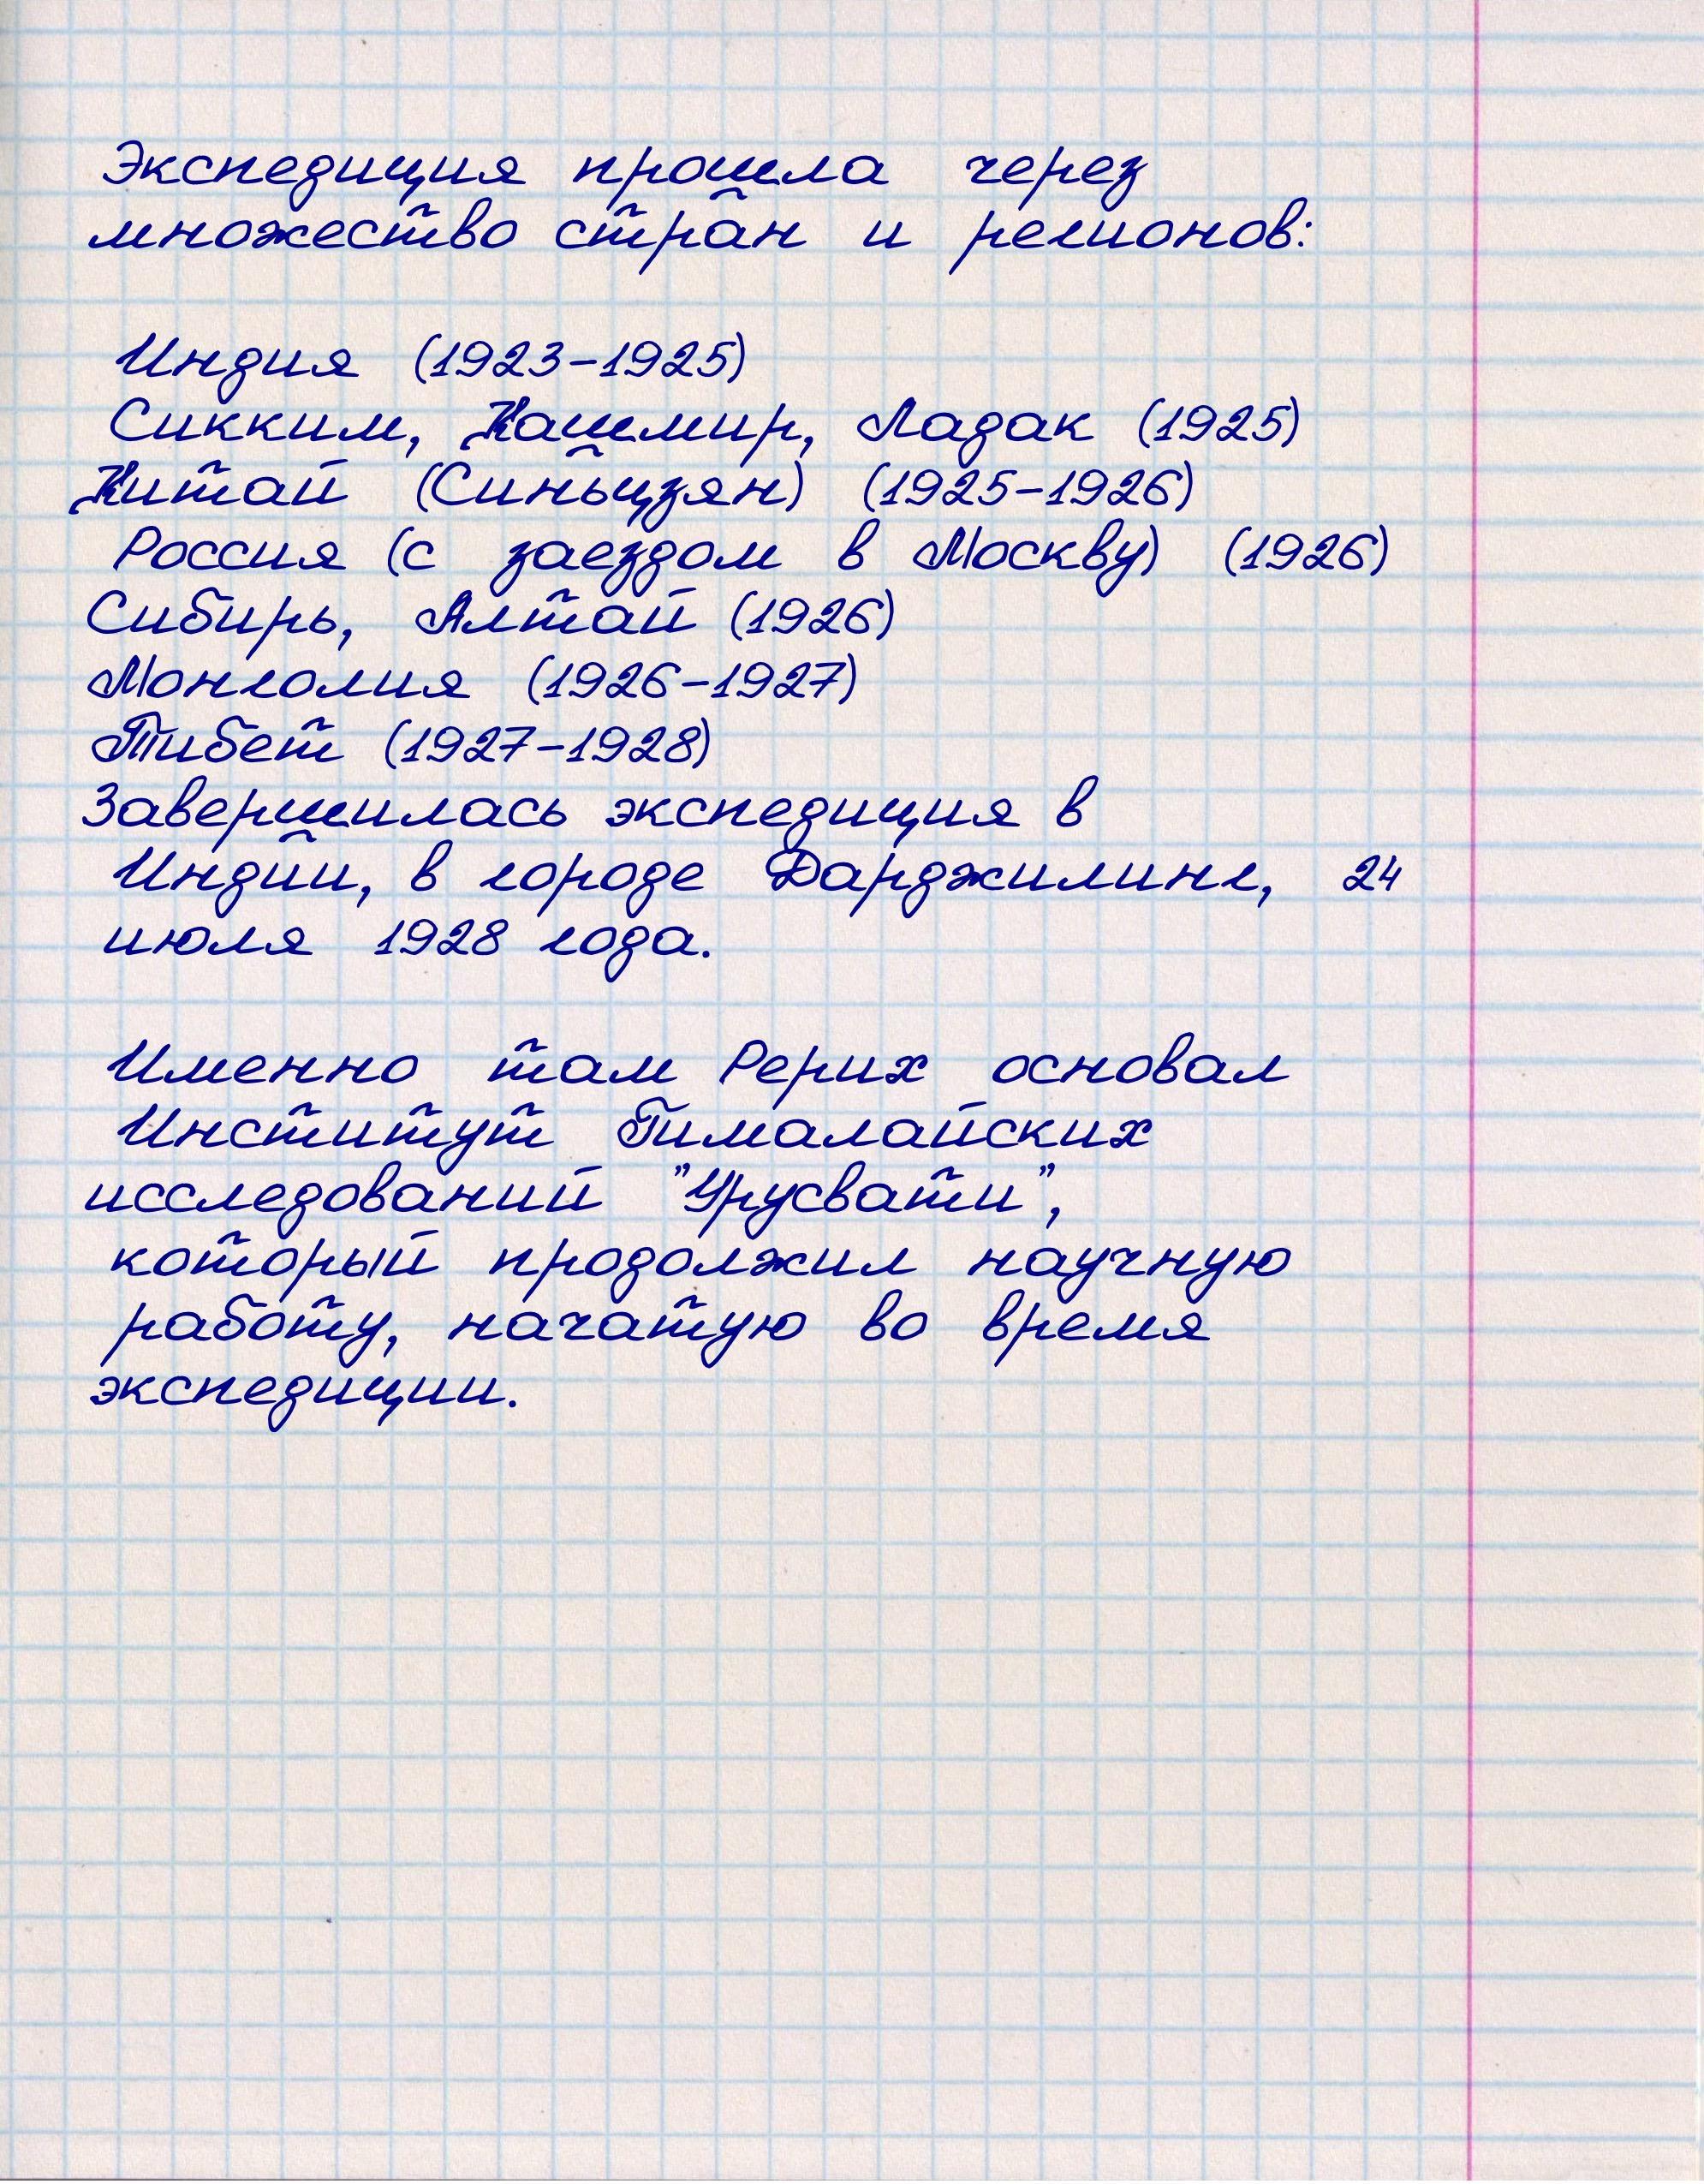 Экспедиция прошла через
множество стран и регионов:
Индия (1923-1925)
Сикким, Кашмир, Ладак (1925)
Китай (Синьцзян) (1925-1926)
Россия (с заездом в Москву) (1926)
Сибирь, Алтай (1926)
Монголия (1926-1927)
Тибет (1927-1928)
Завершилась экспедиция в
Индии, в городе Дарджилинг, 24
июля 1928 года.
Именно там Рерих основал
Институт Гималайских
исследований "Урусвати",
который продолжил научную
работу, начатую во время
экспедиции.